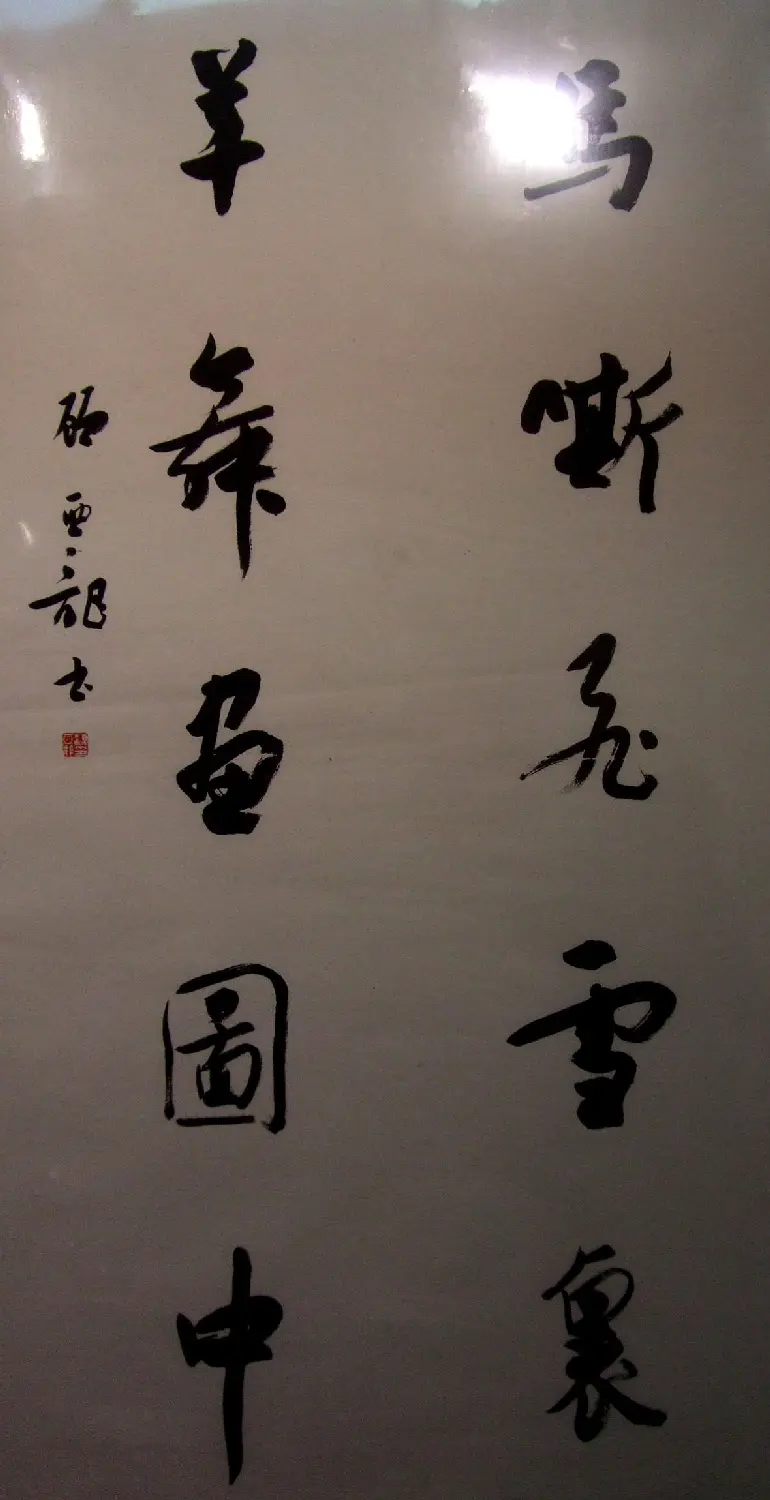 馬嘶飛雪裏
羊舞畫圖中
顧亞龍書